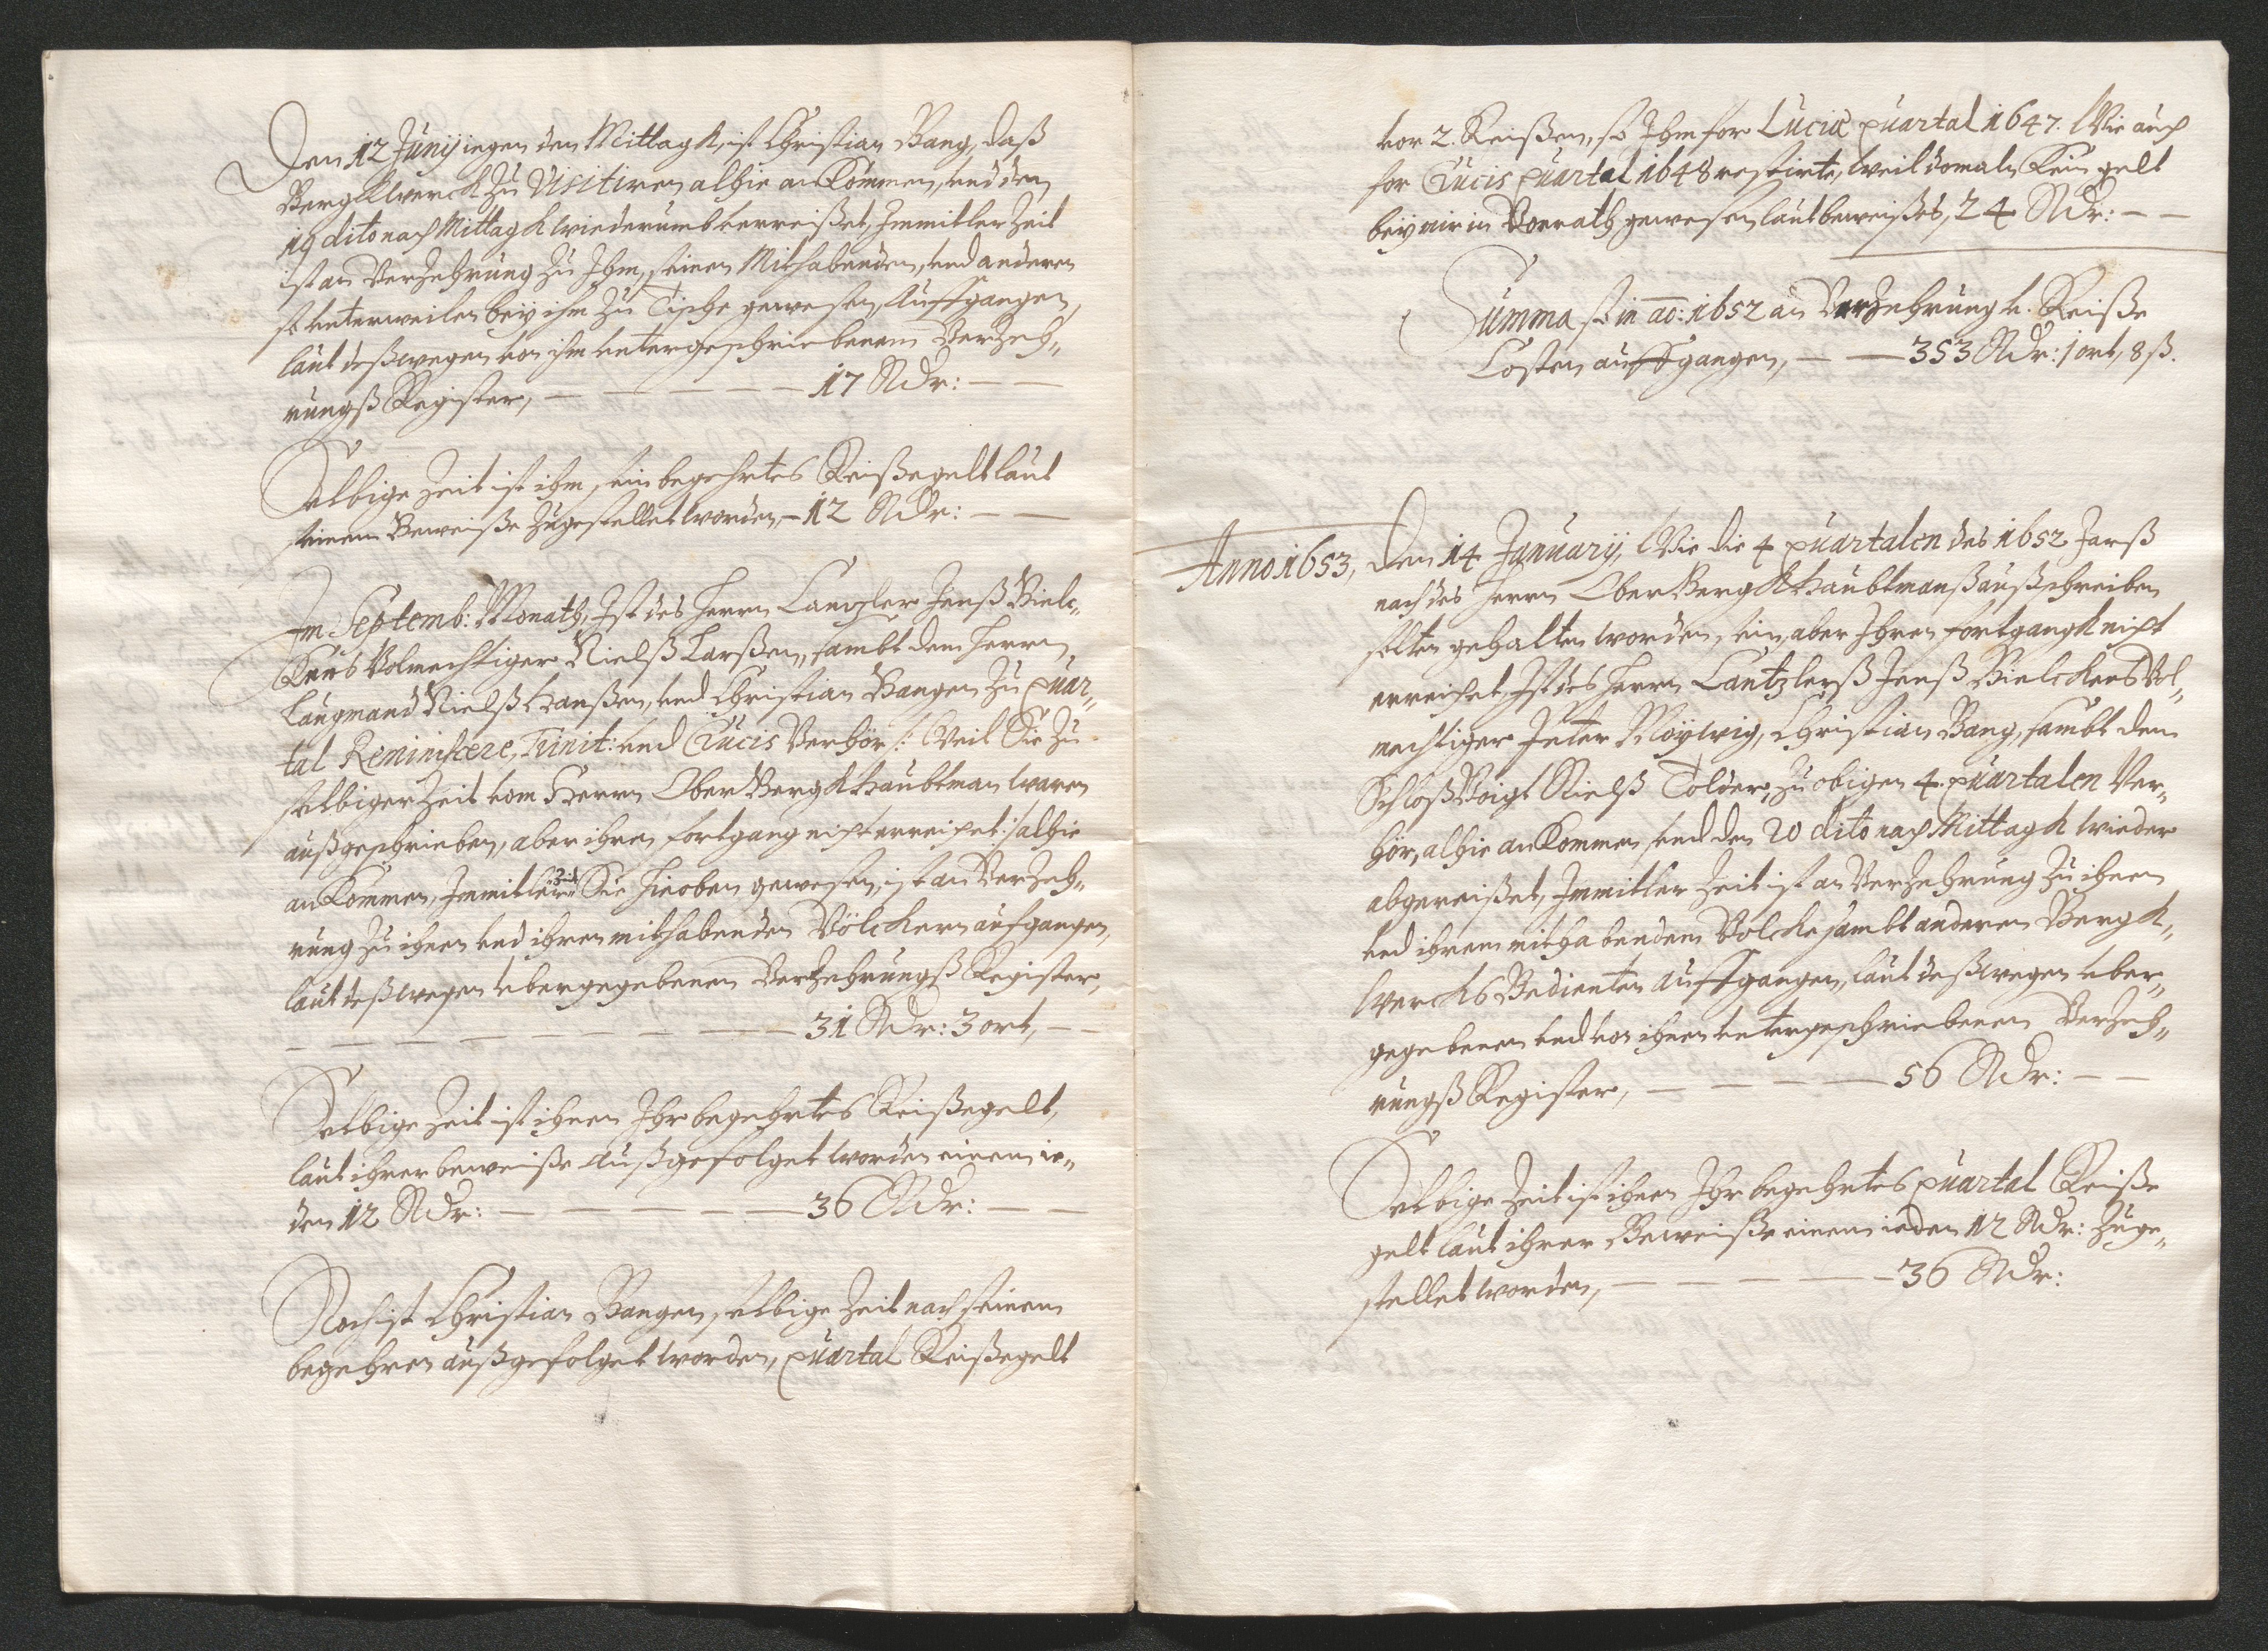 Den 12 Junij iegen den Mittagk, ist Christian Bang, daß
Bergkwerck zu Visitiren alhie ankommen, vnd den
19 dito nach Mittagk wiederumb verreißet, Immitler Zeit
ist an Verzehrung zu Ihm, seinen Mithabenden, vnd anderen
so vnterweilen beÿ ihm zu Tische gewesen, auffgangen,
laut deßwegen von ihm vntergeschriebenem Verzeh„
rungß Register, — — — — 17 Rdr: — —
Selbige Zeit ist ihm, sein begehrtes Reißegelt laut
seinem Beweiße zugestellet worden, – 12 Rdr: — —
Im Septemb: Monath, Ist des Herrn Cantzler Jenß Bielc„
kens Volmechtiger Nielß Larßen, sambt dem Herrn
Laugmand Nielß Hanßen, vnd Christian Bangen zu quar„
tal Reminiscere, Trinit: vnd Crucis Verhör /: Weil Sie zu
selbiger Zeit vom Herrn Ober Bergkhaubtman waren
außgeschrieben, aber ihren fortgang nicht erreichet :/ alhie
ankommen, Immitler Zeit Sie hieoben gewesen, ist an Verzeh„
rung zu ihnen vnd ihren mithabenden Völckern aufgangen,
laut deßwegen vbergegebenem Verzehrungß Register,
— — — — — — — — 31 Rdr: 3 ort, — —
Selbige Zeit ist ihnen Ihr begehrtes Reißegelt,
laut ihrer beweiße außgefolget worden einem ie„
den 12 Rdr: — — — — — 36 Rdr: — —
Noch ist Christian Bangen, selbige Zeit nach seinem
begehren außgefolget worden, quartal Reißegelt
vor 2. Reißen, so Ihm for Luciæ quartal 1647. Wie auch
for Crucis quartal 1648 restirte, weil domals kein gelt
beÿ mir in Vorrath gewesen laut beweißes, 24 Rdr: — —
Summa so in ao: 1652 an Verzehrung v. Reiße
Costen auffgangen, — — 353 Rdr: 1 ort, 8 ß.
Anno 1653, Den 14 Januarij, Wie die 4 quartalen des 1652 Jarß
nach des Herrn Ober Bergkhaubtmanß außschreiben
solten gehalten worden sein, aber Ihren fortgangk nicht
erreichet, Ist des Herrn Cantzlerß Jenß Bielckens Vol„
mechtiger Peter Moÿwig, Christian Bang, sambt dem
Schloßvoigt Nielß Tolder, zu obigen 4. quartalen Ver„
hör, alhie ankommen, vnd den 20 dito nach Mittagk wieder
abgereißet, Immitler Zeit ist an Verzehrung zu ihnen
vnd ihrem mithabendem Volcke sambt anderen Bergk„
wercks Bedienten auffgangen, laut deßwegen vber„
gegebenem vnd von ihnen vntergeschriebenem Verzeh„
rungß Register, — — — — 56 Rdr: — —
Selbige Zeit ist ihnen Ihr begehrtes quartal Reiße
gelt laut ihrer Beweiße einem ieden 12 Rdr: zuge„
stellet worden, — — — — — 36 Rdr: